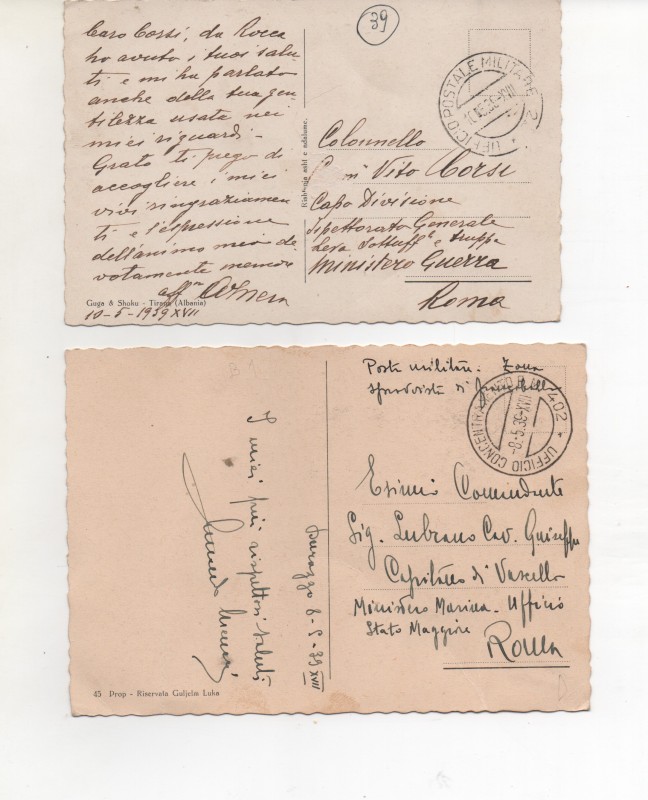 39
Caro Corsi, da Rocca
ho avuto i tuoi salu-
ti e mi ha parlato
anche della tua gen-
tilezza usata nei
miei riguardi -
Grato ti prego di
accogliere i miei
vivi ringraziamen
ti e l'espressione
dell'animo mio de-
votamente memore
aff.mo
Goga & Shoku - Tirana (Albania)
10-5-1939 XVII
UFFICIO POSTALE MILITARE 2
Colonnello
Vito Corsi
Capo Divisione
Ispettorato Generale
Leva Sottuff.li e truppa
Ministero Guerra
Roma
B 1
Posta militare. Zona
sprovvista di francobolli
UFFICIO CONCENTRAMENTO P.M. 402
-8.5.39-XVII
Esimio Comandante
Sig. Lubrano Cav. Giuseppe
Capitano di Vascello
Ministero Marina - Ufficio
Stato Maggiore
Roma
Durazzo 8-5-39 XVII
I miei più rispettosi saluti
45 Prop - Riservata Guljelm Luka